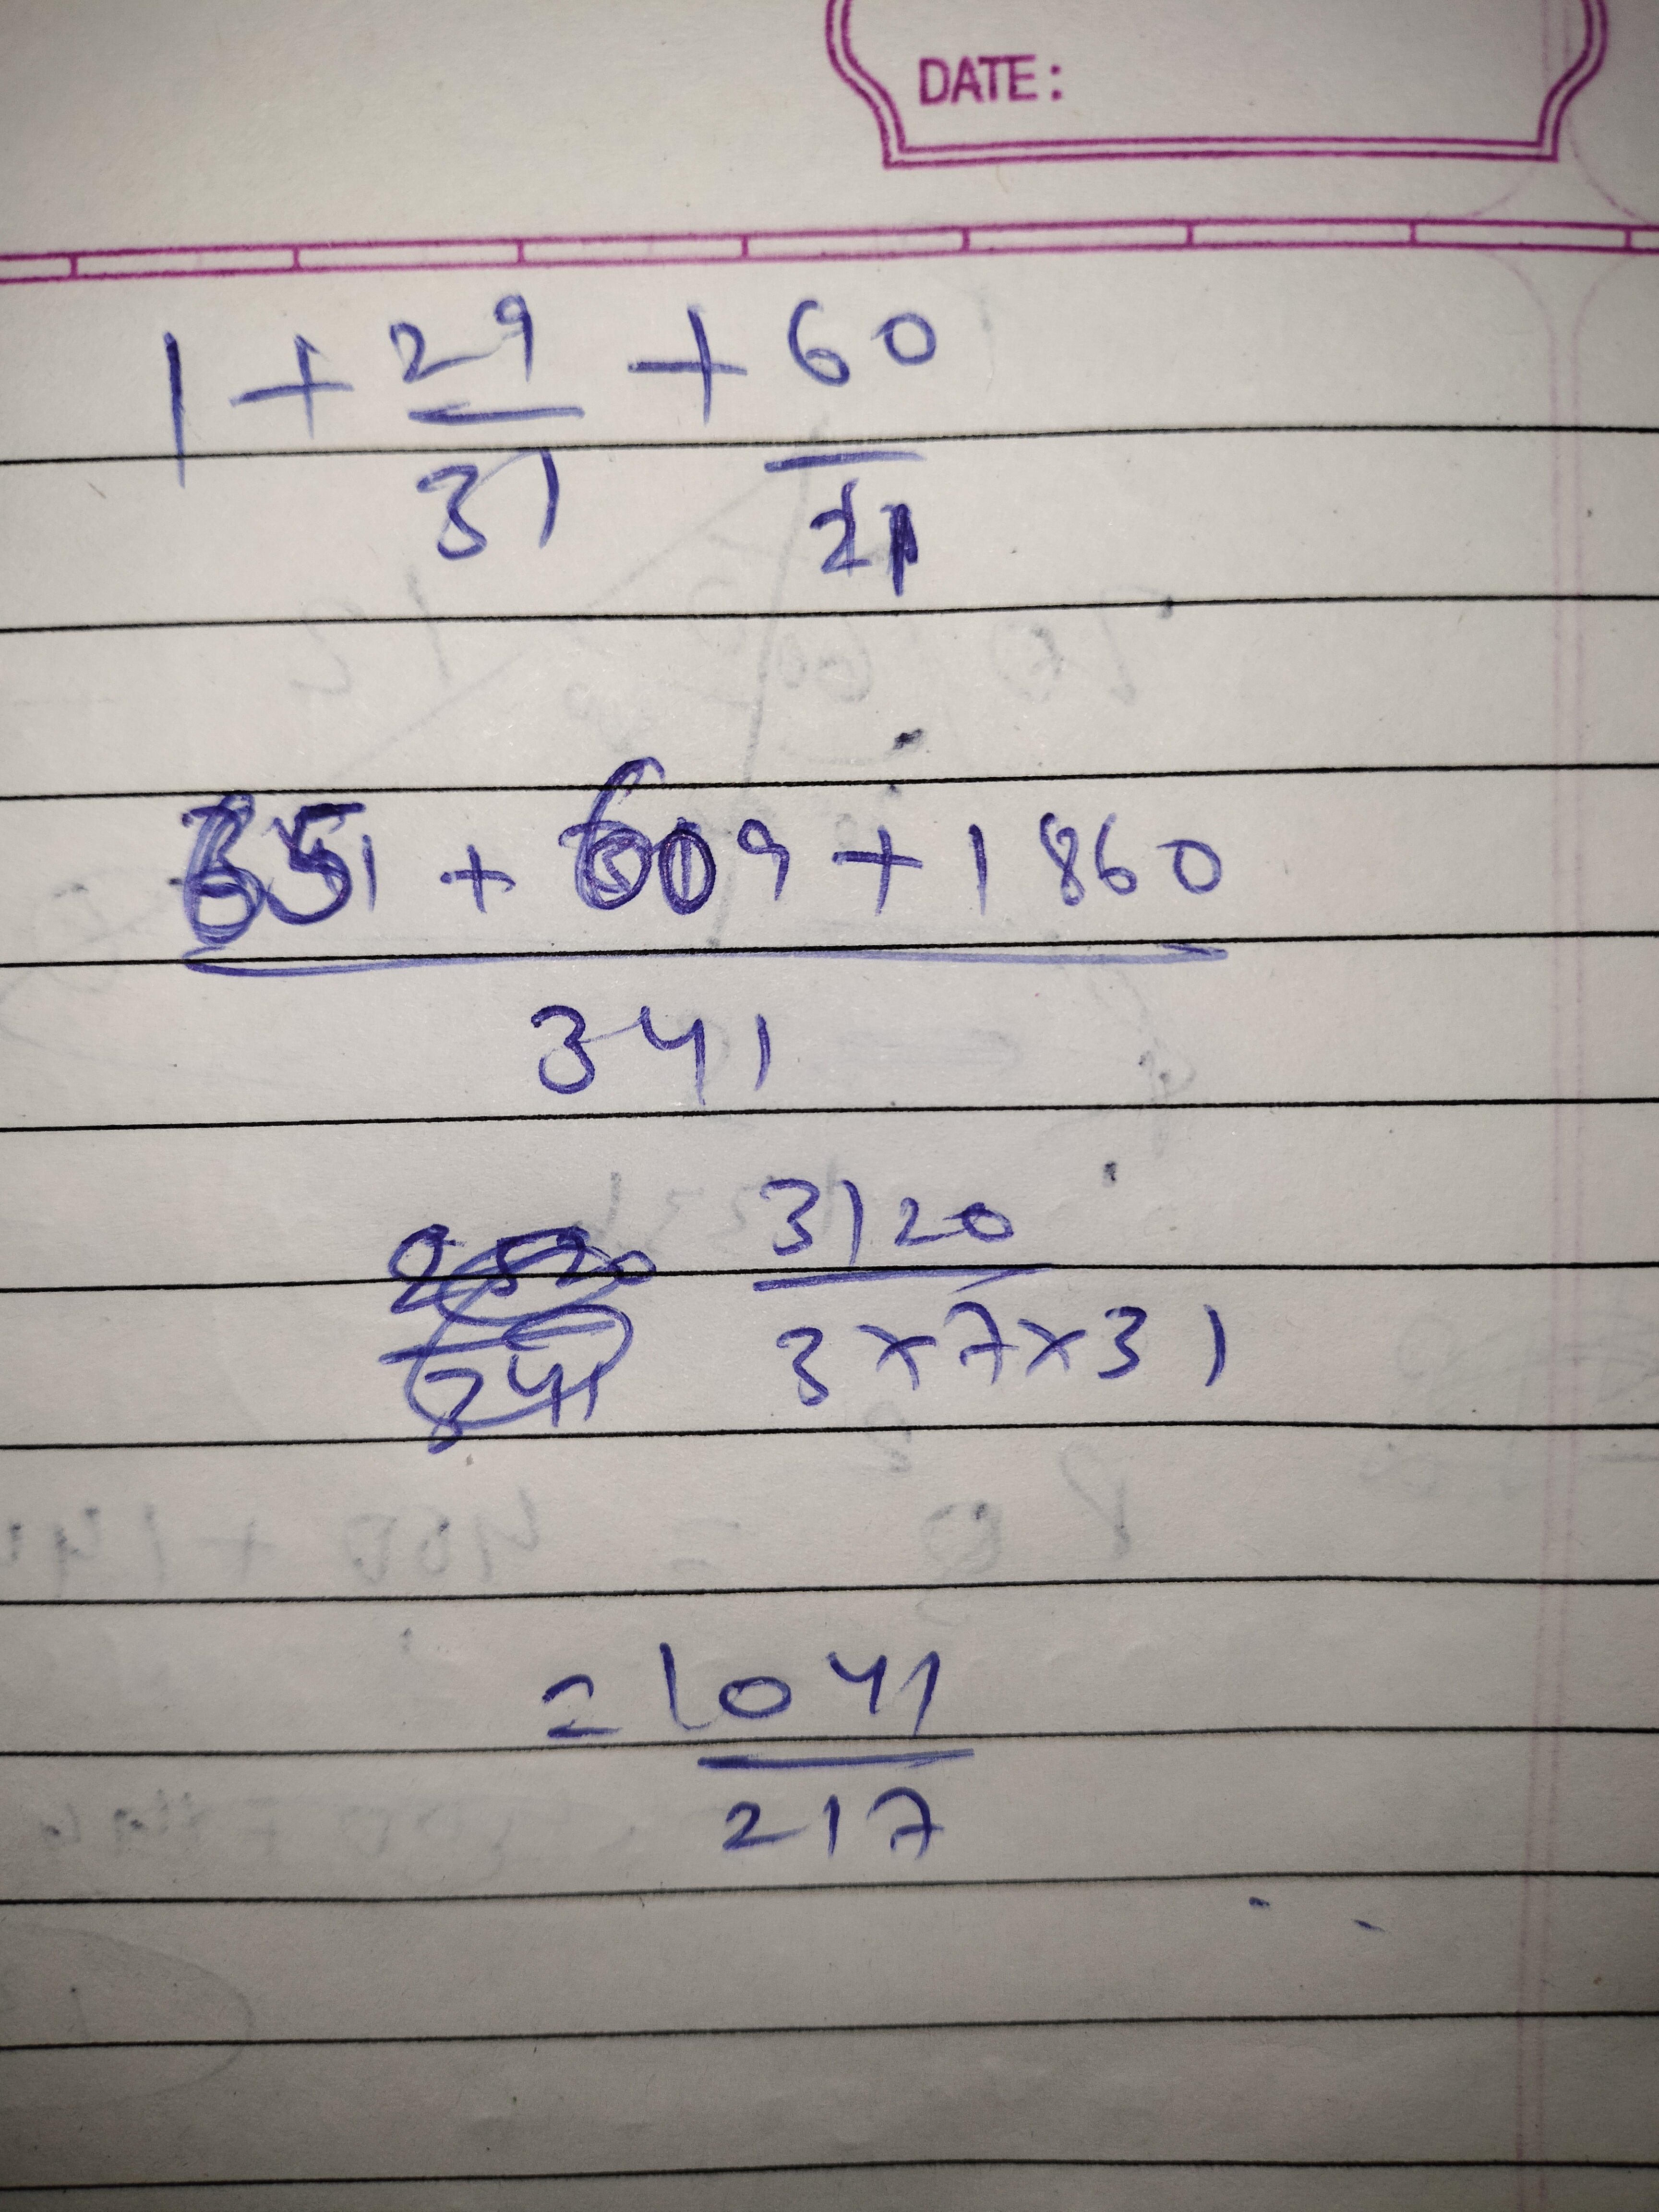 DATE:
1 + 29/31 + 60/21
651 + 609 + 1860
341
3120
3×7×31
= 1041
217